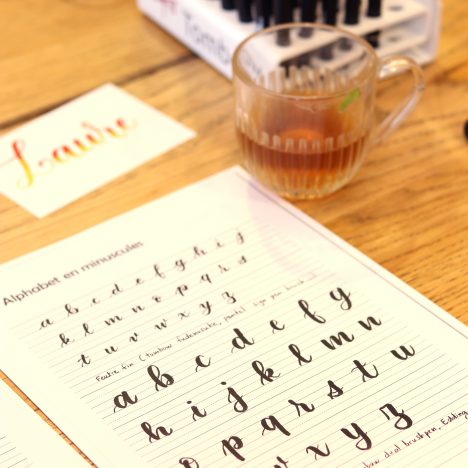 Tombow
Laure
Alphabet en minuscules
a b c d e f g h i j
k l m n o p q r s
t u v w x y z
Feutre fin (tombow fudenosuke, pentel sign pen brush
a b c d e f g
h i j k l m n
o p q r s t u
w x y z
dual brushpen, Edding